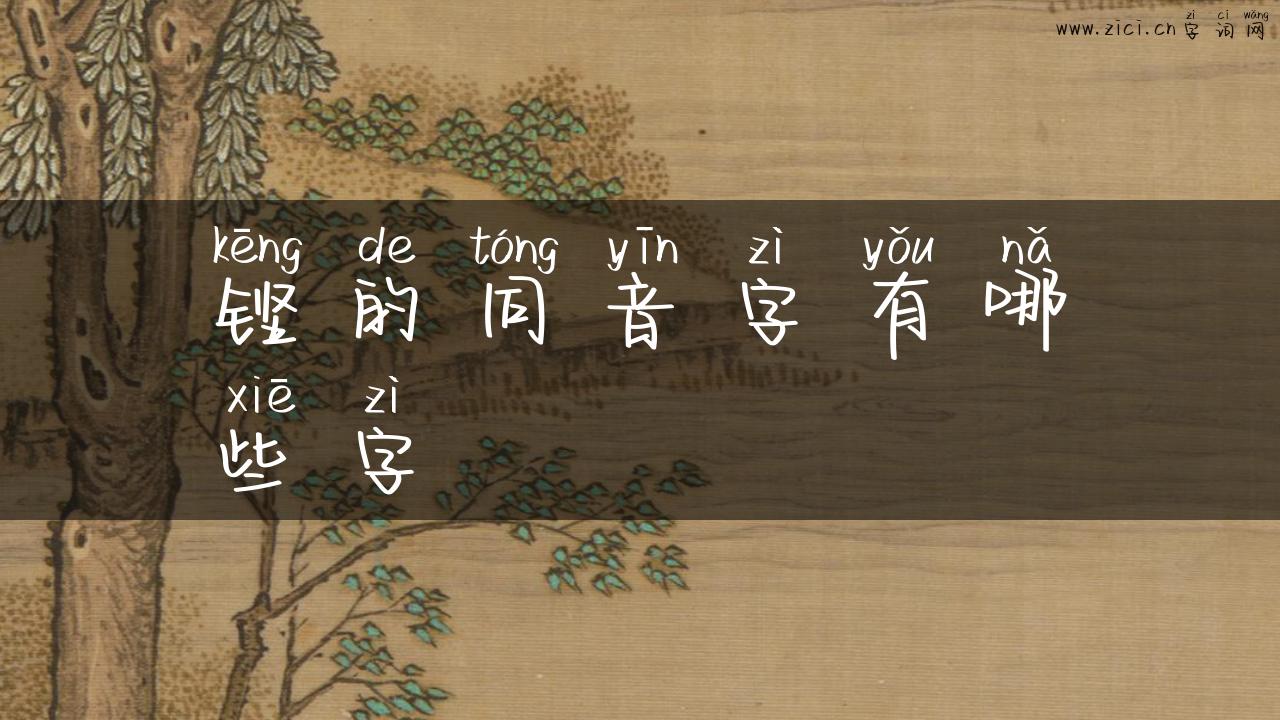 zì cí wǎng
www.zici.cn 字词网
kēng de tóng yīn zì yǒu nǎ
铿的同音字有哪
xiē zì
些字